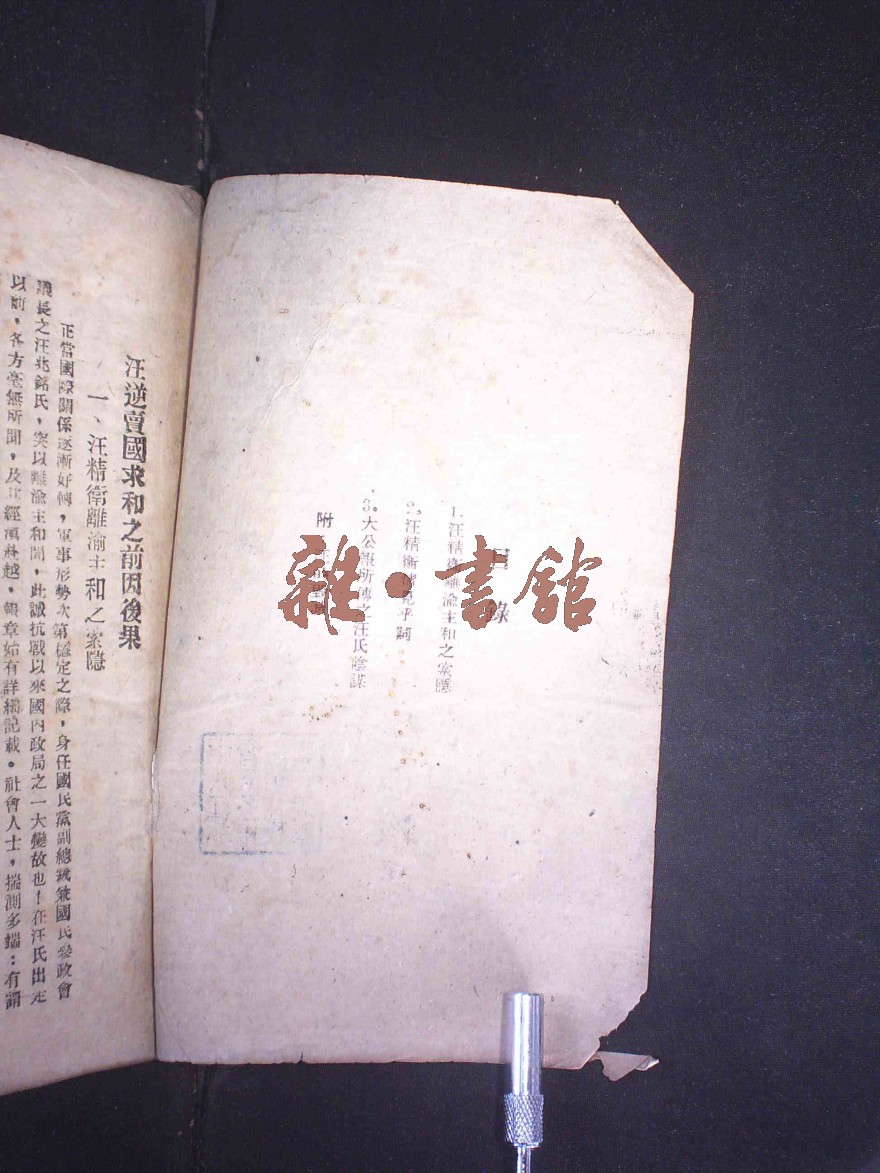 目錄
1.汪精衛離渝主和之案隱
2.汪精衛
3。大公報所傳之汪氏陰謀
附
雜·書館
汪逆賣國求和之前因後果
一、汪精衛離渝主和之案隱
正當國際關係逐漸好轉,軍事形勢次第穩定之際,身任國民黨副總裁兼國民參政會
議長之汪兆銘氏,突以離渝主和聞,此誠抗戰以來國內政局之一大變故也!在汪氏出走
以前,各方毫無所聞,及其經滇赴越,報章始有詳細記載。社會人士,揣測多端:有謂